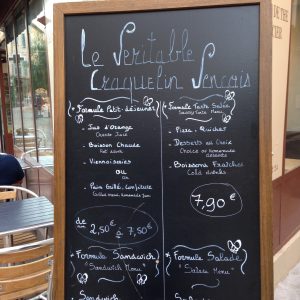 Le Véritable
Craquelin Vençois
Formule Petit-déjeuner
Jus d'Orange
Orange Juice
Boisson Chaude
Hot drink
Viennoiseries
ou
Pain Grillé, confiture
de 2,50€ à 7,50€
Formule Sandwich
"Sandwich Menu"
Sandwich
Formule Tarte Salée
Savoury Tarte Menu
Pizza, Quiches
Desserts au Choix
Choice of homemade
desserts
Boissons Fraîches
Cold drinks
7,90€
Formule Salade
"Salade Menu"